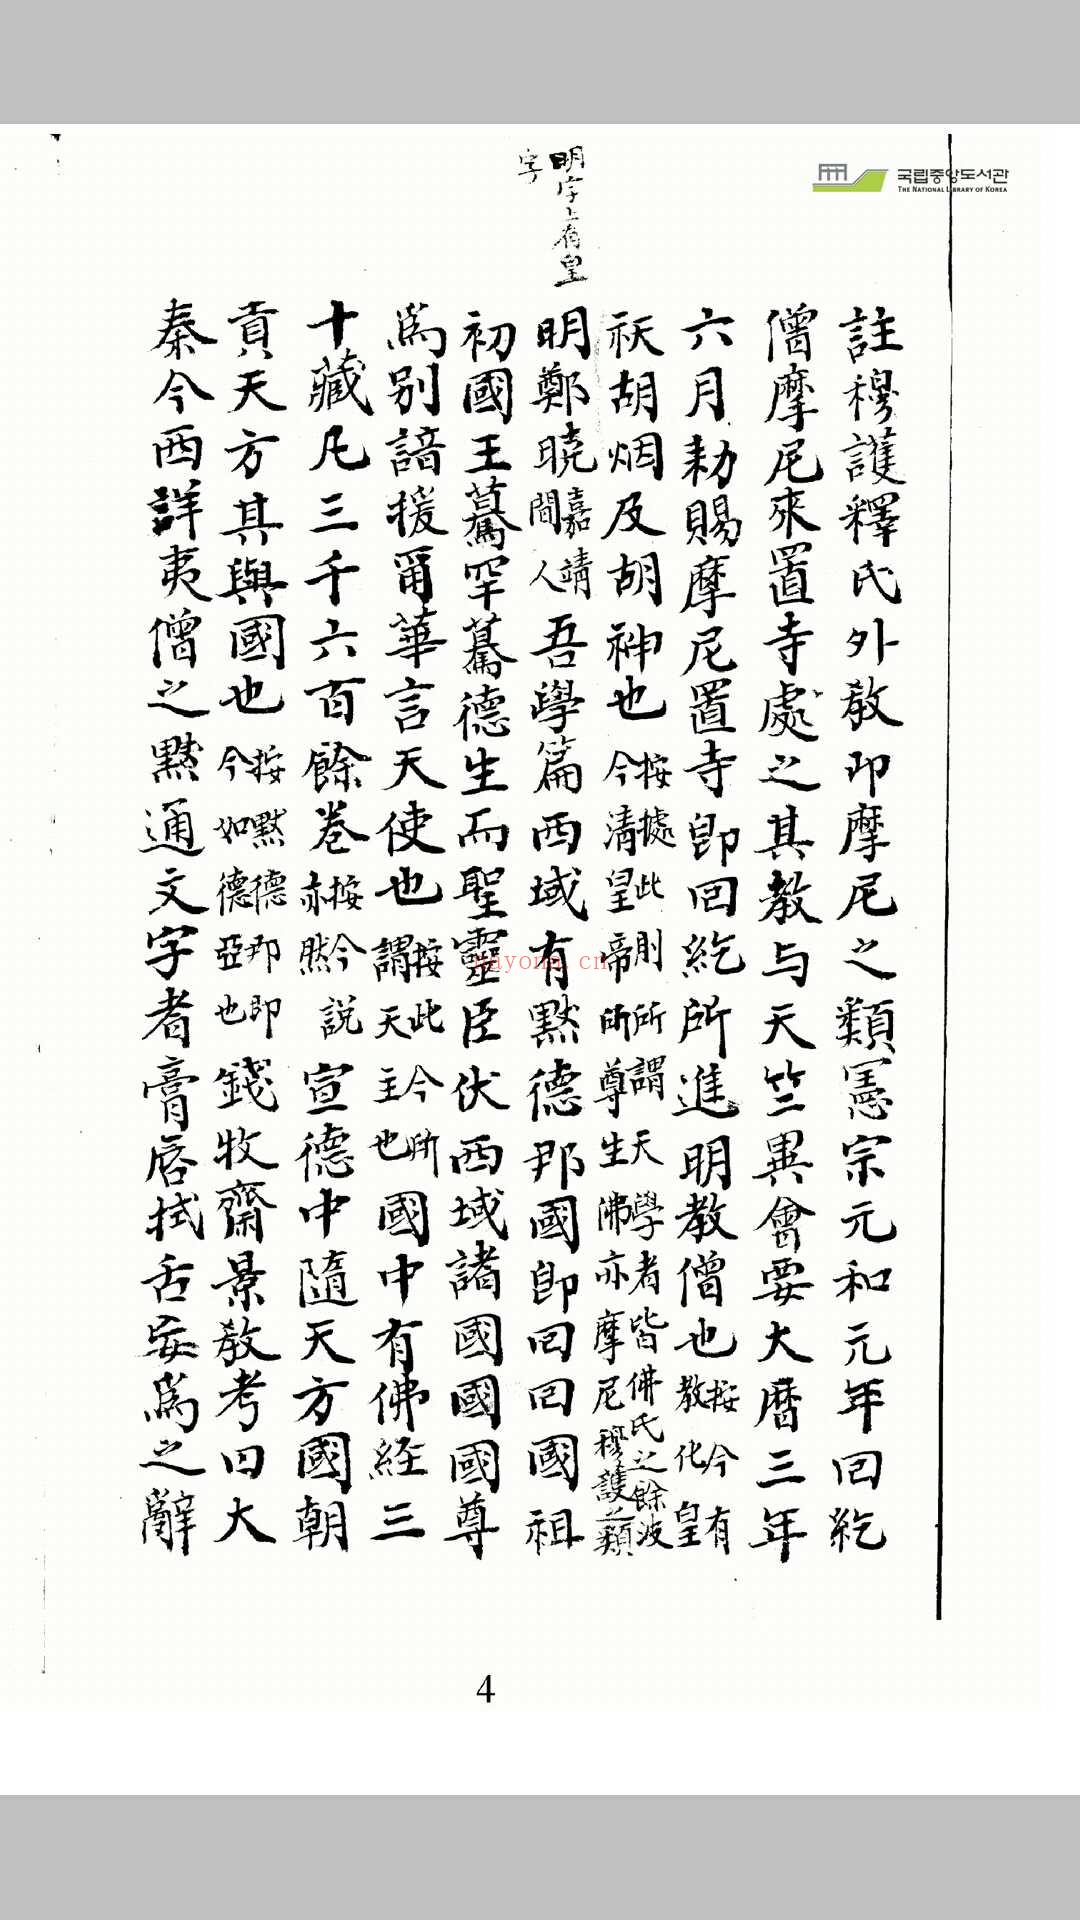 국립중앙도서관
THE NATIONAL LIBRARY OF KOREA
明字上有皇
字
註穆護釋氏外教即摩尼之類憲宗元和元年回紇
僧摩尼來置寺處之其教与天竺異會要大曆三年
六月勅賜摩尼置寺即回紇所進明教僧也按今有教化皇
祅胡烟及胡神也按據此則所謂天學者皆佛氏之餘波今清皇帝所尊生佛亦摩尼穆護之類
明鄭曉嘉靖間人吾學篇西域有默德那國即回回國祖
初國王驀罕驀德生而聖靈臣伏西域諸國國國尊
為別諳援爾華言天使也按此今所謂天主也國中有佛經三
十藏凡三千六百餘卷按今說亦然宣德中隨天方國朝
貢天方其與國也按默德那即今如德亞也錢牧齋景教考曰大
秦今西詳夷僧之黠通文字者膏唇拭舌妄為之辭
nayona.cn
4